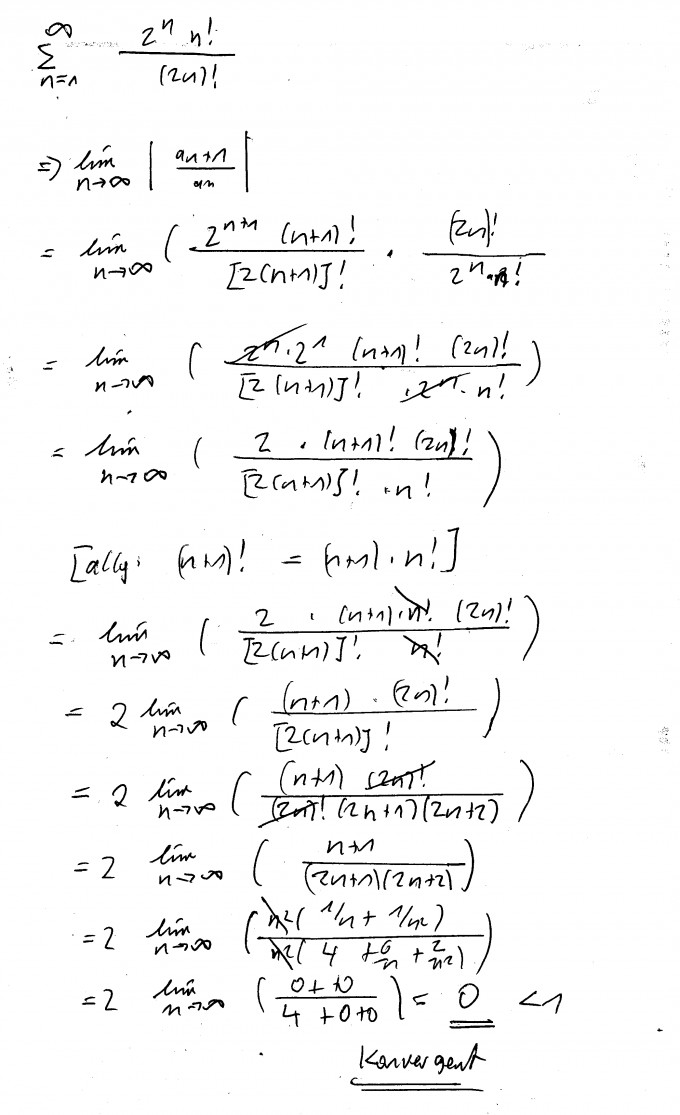 ∑_{n=1}^{∞} \frac{2^n n!}{(2n)!}
⇒ lim_{n→∞} | \frac{a_{n+1}}{a_n} |
= lim_{n→∞} ( \frac{2^{n+1} (n+1)!}{[2(n+1)]!} · \frac{(2n)!}{2^n · n!}
= lim_{n→∞} ( \frac{2^n · 2^1 (n+1)! (2n)!}{[2(n+1)]! · 2^n · n!} )
= lim_{n→∞} ( \frac{2 · (n+1)! (2n)!}{[2(n+1)]! · n!} )
[allg: (n+1)! = (n+1) · n!]
= lim_{n→∞} ( \frac{2 · (n+1) · n! (2n)!}{[2(n+1)]! n!} )
= 2 lim_{n→∞} ( \frac{(n+1) · (2n)!}{[2(n+1)]!} )
= 2 lim_{n→∞} ( \frac{(n+1) (2n)!}{(2n)! (2n+1)(2n+2)} )
= 2 lim_{n→∞} ( \frac{n+1}{(2n+1)(2n+2)} )
= 2 lim_{n→∞} ( \frac{n²( 1/n + 1/n² )}{n²( 4 + \frac{6}{n} + \frac{2}{n²} )} )
= 2 lim_{n→∞} ( \frac{0 + 0}{4 + 0 + 0} ) = 0 < 1
Konvergent